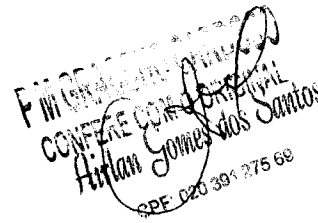 CONFERE COM ORIGINAL
Hirlan Gomes dos Santos
CPF: 020 391 275 69